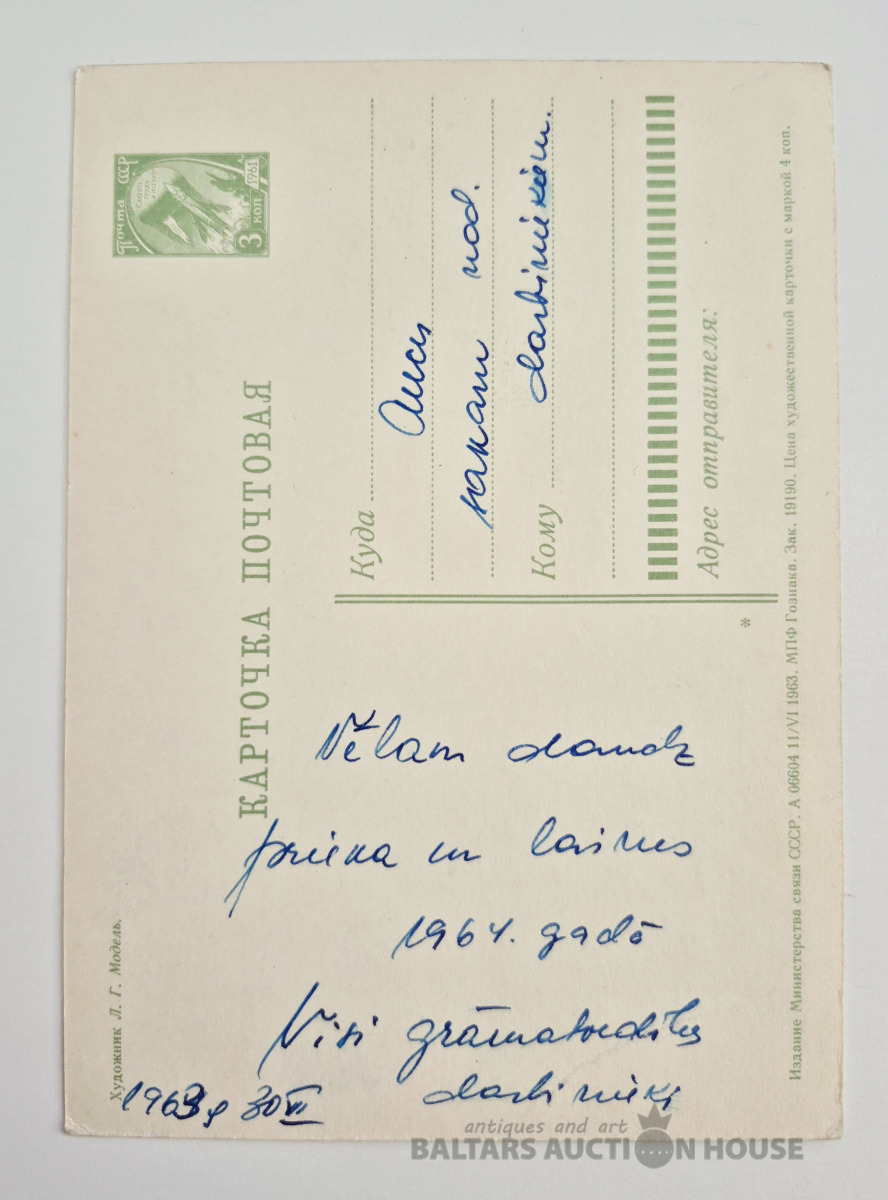 Почта СССР
1961
3 коп
КАРТОЧКА ПОЧТОВАЯ
Художник Л. Г. Модель.
Vēlam daudz
prieka un laimes
1964. gadā
Visi grāmatvedības
darbinieki
1963 30
Куда
nod.
Кому
darbiniekiem.
Адрес отправителя:
*
Издание Министерства связи СССР. А 06604 11/VI 1963. МПФ Гознака. Зак. 19190. Цена художественной карточки с маркой 4 коп.
antiques and art
BALTARS AUCTION HOUSE